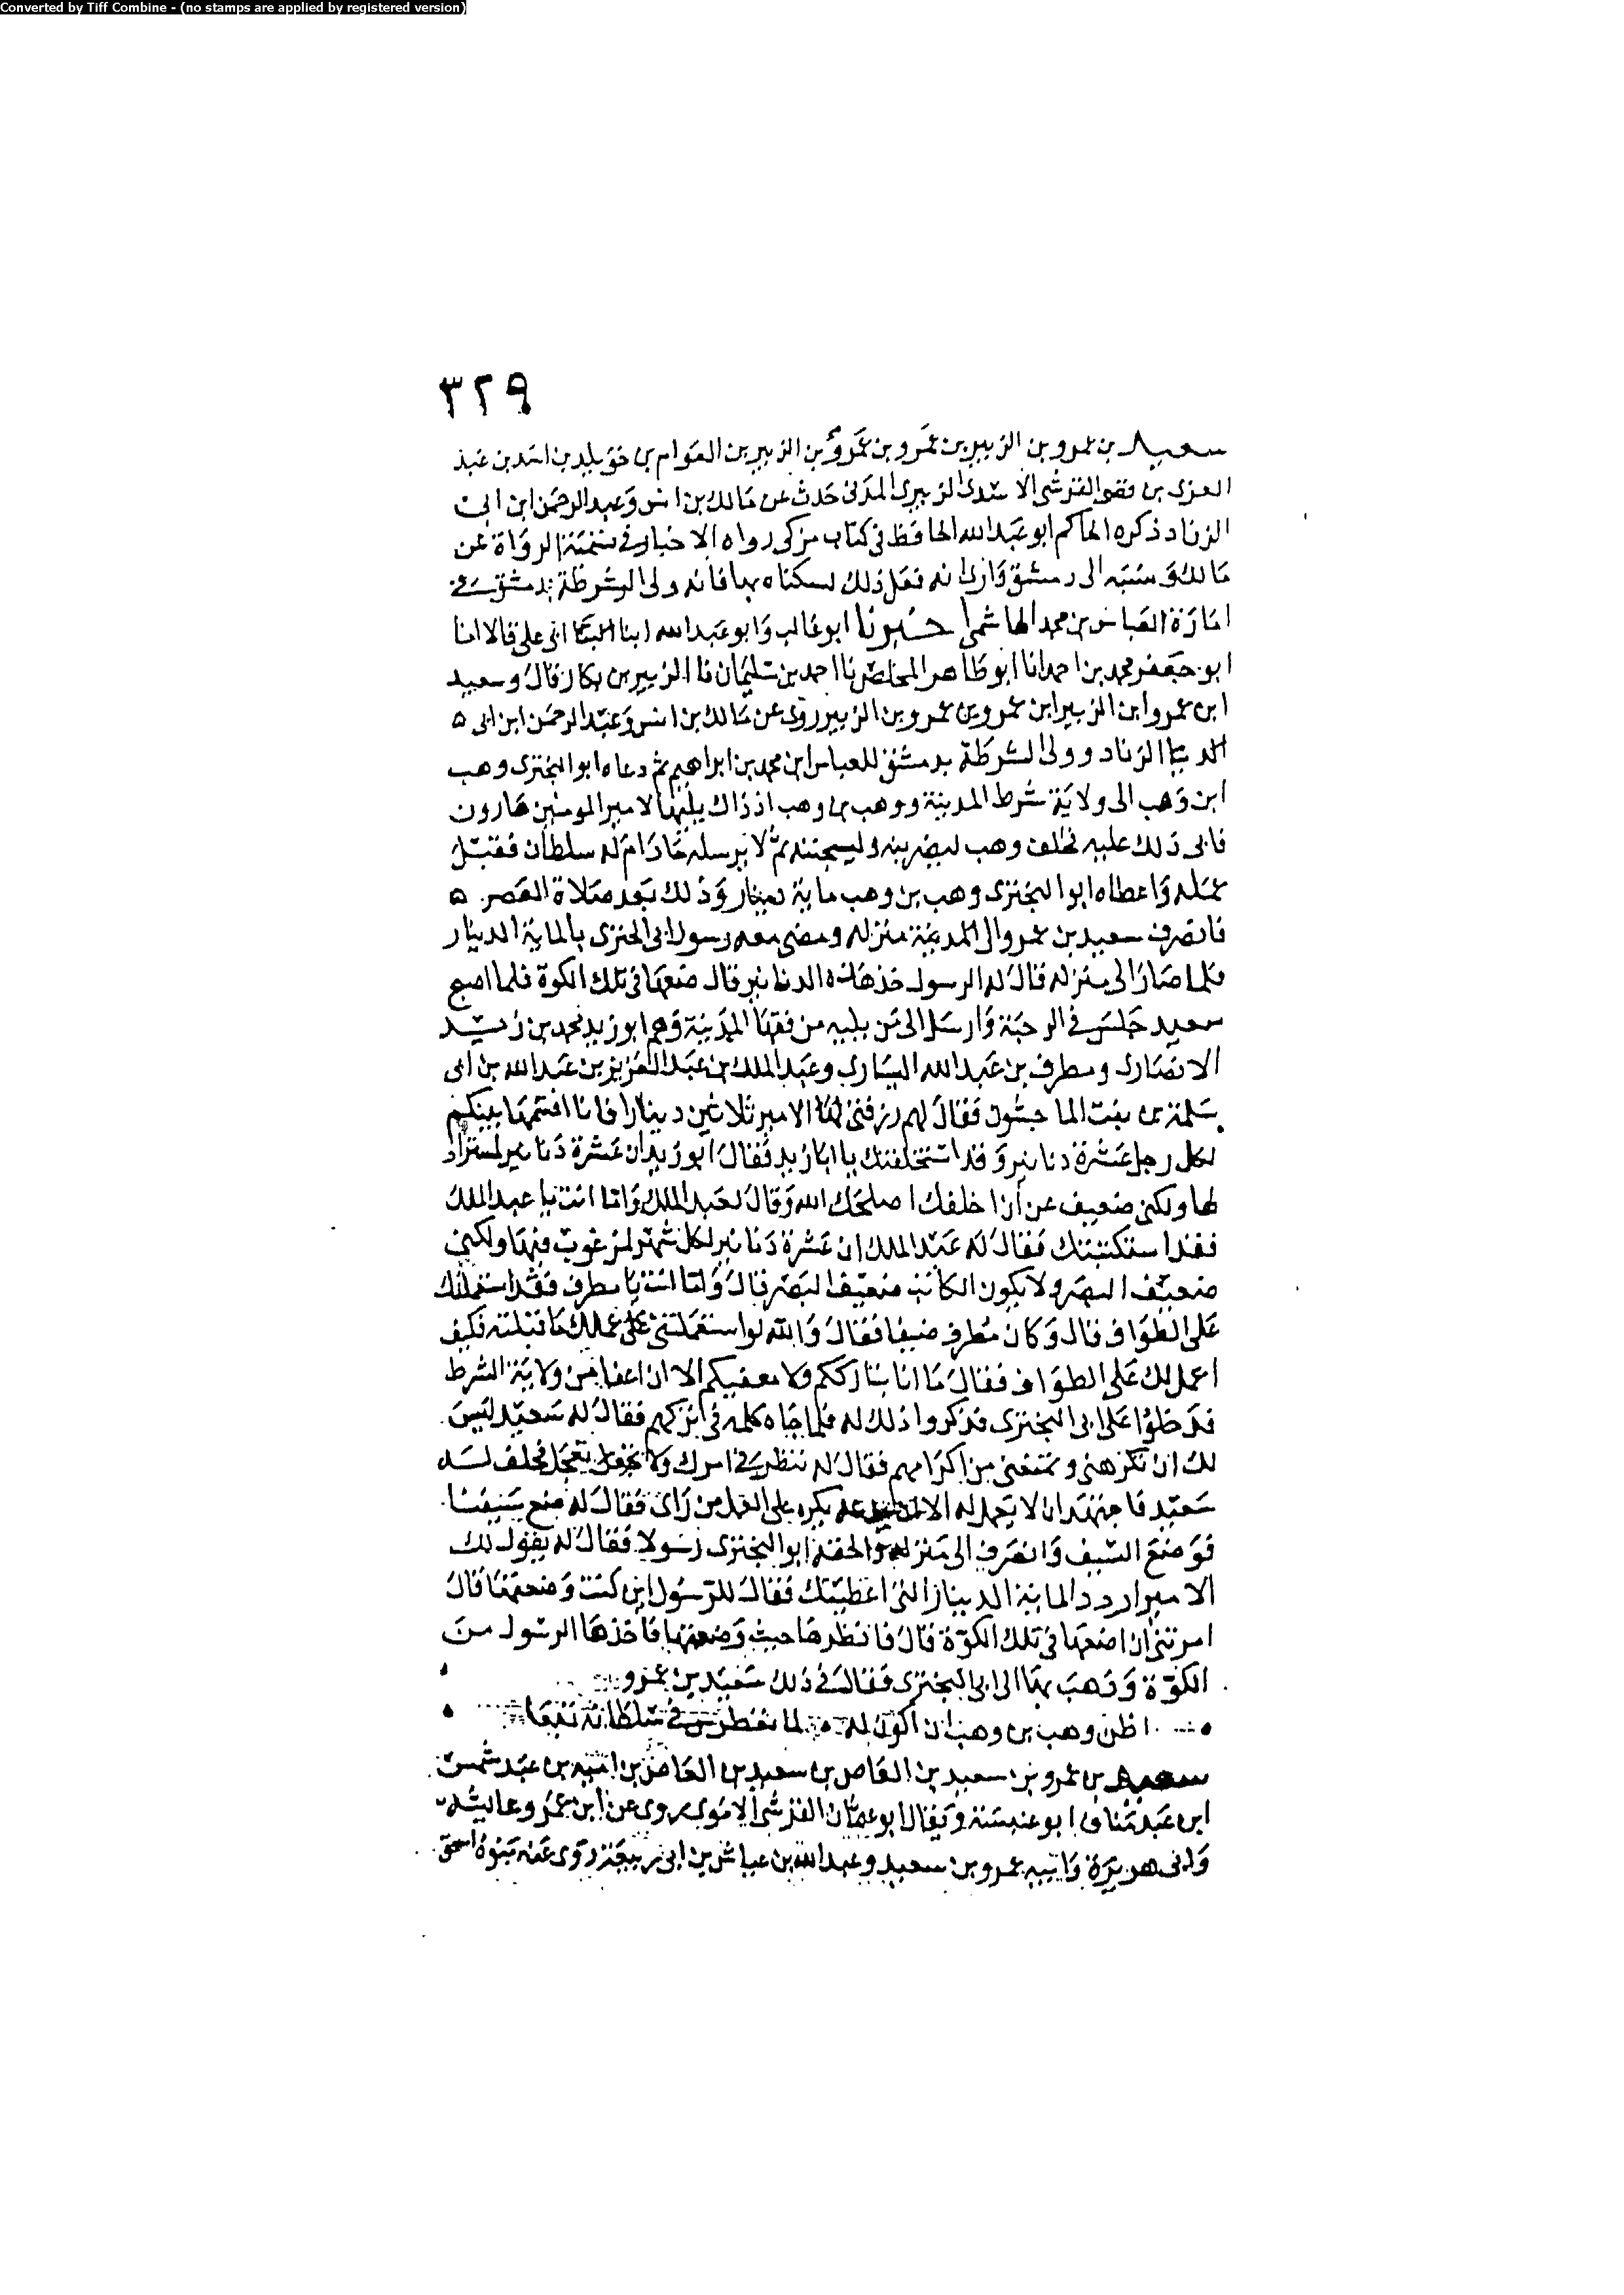 Converted by Tiff Combine - (no stamps are applied by registered version)
٣٢٩
سعيد بن عمرو بن الزبير بن عمرو بن عمرو بن الزبير بن العوام بن خويلد بن اسد بن عبد
العزى بن قصي القرشي الاسدي الزبيري المدني حدث عن مالك بن انس وعبد الرحمن ابن ابي
الزناد ذكره الحاكم ابو عبد الله الحافظ في كتاب مزكى رواه الاخبار في تسمية الرواة عن
مالك ونسبه الى دمشق وارى انه فعل ذلك لسكناه بها فانه ولي الشرطة بدمشق في
امارة العباس بن محمد الهاشمي اخبرنا ابو غالب وابو عبد الله ابنا البنا ابي علي قالا انا
ابو جعفر محمد بن احمد انا ابو طاهر المخلص نا احمد بن سليمان نا الزبير بن بكار قال وسعيد
ابن عمرو ابن الزبير ابن عمرو بن عمرو بن الزبير روى عن مالك بن انس وعبد الرحمن ابن ابي ٥
الزناد وولي الشرطة بدمشق للعباس ابن محمد بن ابراهيم ثم دعاه ابو البختري وهب
ابن وهب الى ولاية شرط المدينة ووهب بن وهب اذ ذاك يليها لامير المومنين هارون
فابى ذلك عليه فحلف وهب ليضربنه وليسجننه ثم لا يرسله مادام له سلطان فقبل
عمله واعطاه ابو البختري وهب بن وهب ماية دينار وذلك بعد صلاة العصر ٥
فانصرف سعيد بن عمرو الى منزله ومضى معه رسول ابي البختري بالماية الدينار
فلما صار الى منزله قال له الرسول خذ هذه الدنانير قال ضعها في تلك الكوة فلما اصبح
سعيد جلس في الرحبة وارسل الى من يليه من فقها المدينة وهم ابو زيد محمد بن زيد
الانصاري ومطرف بن عبد الله اليساري وعبد الملك بن عبد العزيز بن عبد الله بن ابي
سلمة بن بنت الماجشون فقال لهم رزقني الامير ثلاثين دينارا فانا اقسمها بينكم
لكل رجل عشرة دنانير وقد استخلفتك يا ابا زيد فقال ابو زيد ان عشرة دنانير لمستزاد
لها ولكني ضعيف عن ان اخلفك اصلحك الله وقال لعبد الملك واما انت يا عبد الملك
فقد استكتبتك فقال له عبد الملك ان عشرة دنانير لكل شهر لمرغوب فيها ولكني
ضعيف البصر ولا يكون الكاتب ضعيف البصر قال واما انت يا مطرف فقد استعملتك
على الطواف قال وكان مطرف ضيفا فقال والله لو استعملتني على عملك ما قبلته فكيف
اعمل لك على الطواف فقال ما انا بتارككم ولا معفيكم الا ان اعفا من ولاية الشرط
فدخلوا على ابي البختري فذكروا ذلك له فلما جاه كلمه في تركهم فقال له سعيد ليس
لك ان تكرهني وتمنعني من اكراههم فقال له ننظر في امرك ولا تعجل فحلف له
سعيد فاجتهد ان لا يعمل له الا ان يكره على العمل من راى فقال له ضع سيفنا
فوضع السيف وانصرف الى منزله والحقه ابو البختري رسولا فقال له يقول لك
الامير اردد الماية الدينار التي اعطيتك فقال للرسول اين كنت وضعتها قال
امرتني ان اضعها في تلك الكوة قال فانظرها حيث وضعتها فاخذها الرسول من
الكوة وذهب بها الى ابي البختري فقال في ذلك سعيد بن عمرو
اظن وهب بن وهب ان اكون له لما تغطرس في سلطانه تبعا
سعيد بن عمرو بن سعيد بن العاص بن سعيد بن العاص بن امية بن عبد شمس
ابن عبد مناف ابو عنبسة ويقال ابو عثمان القرشي الاموي يروي عن ابن عمر وعايشة
وابي هريرة وابيه عمرو بن سعيد وعبد الله بن عياش بن ابي ربيعة روى عنه بنوه اسحق